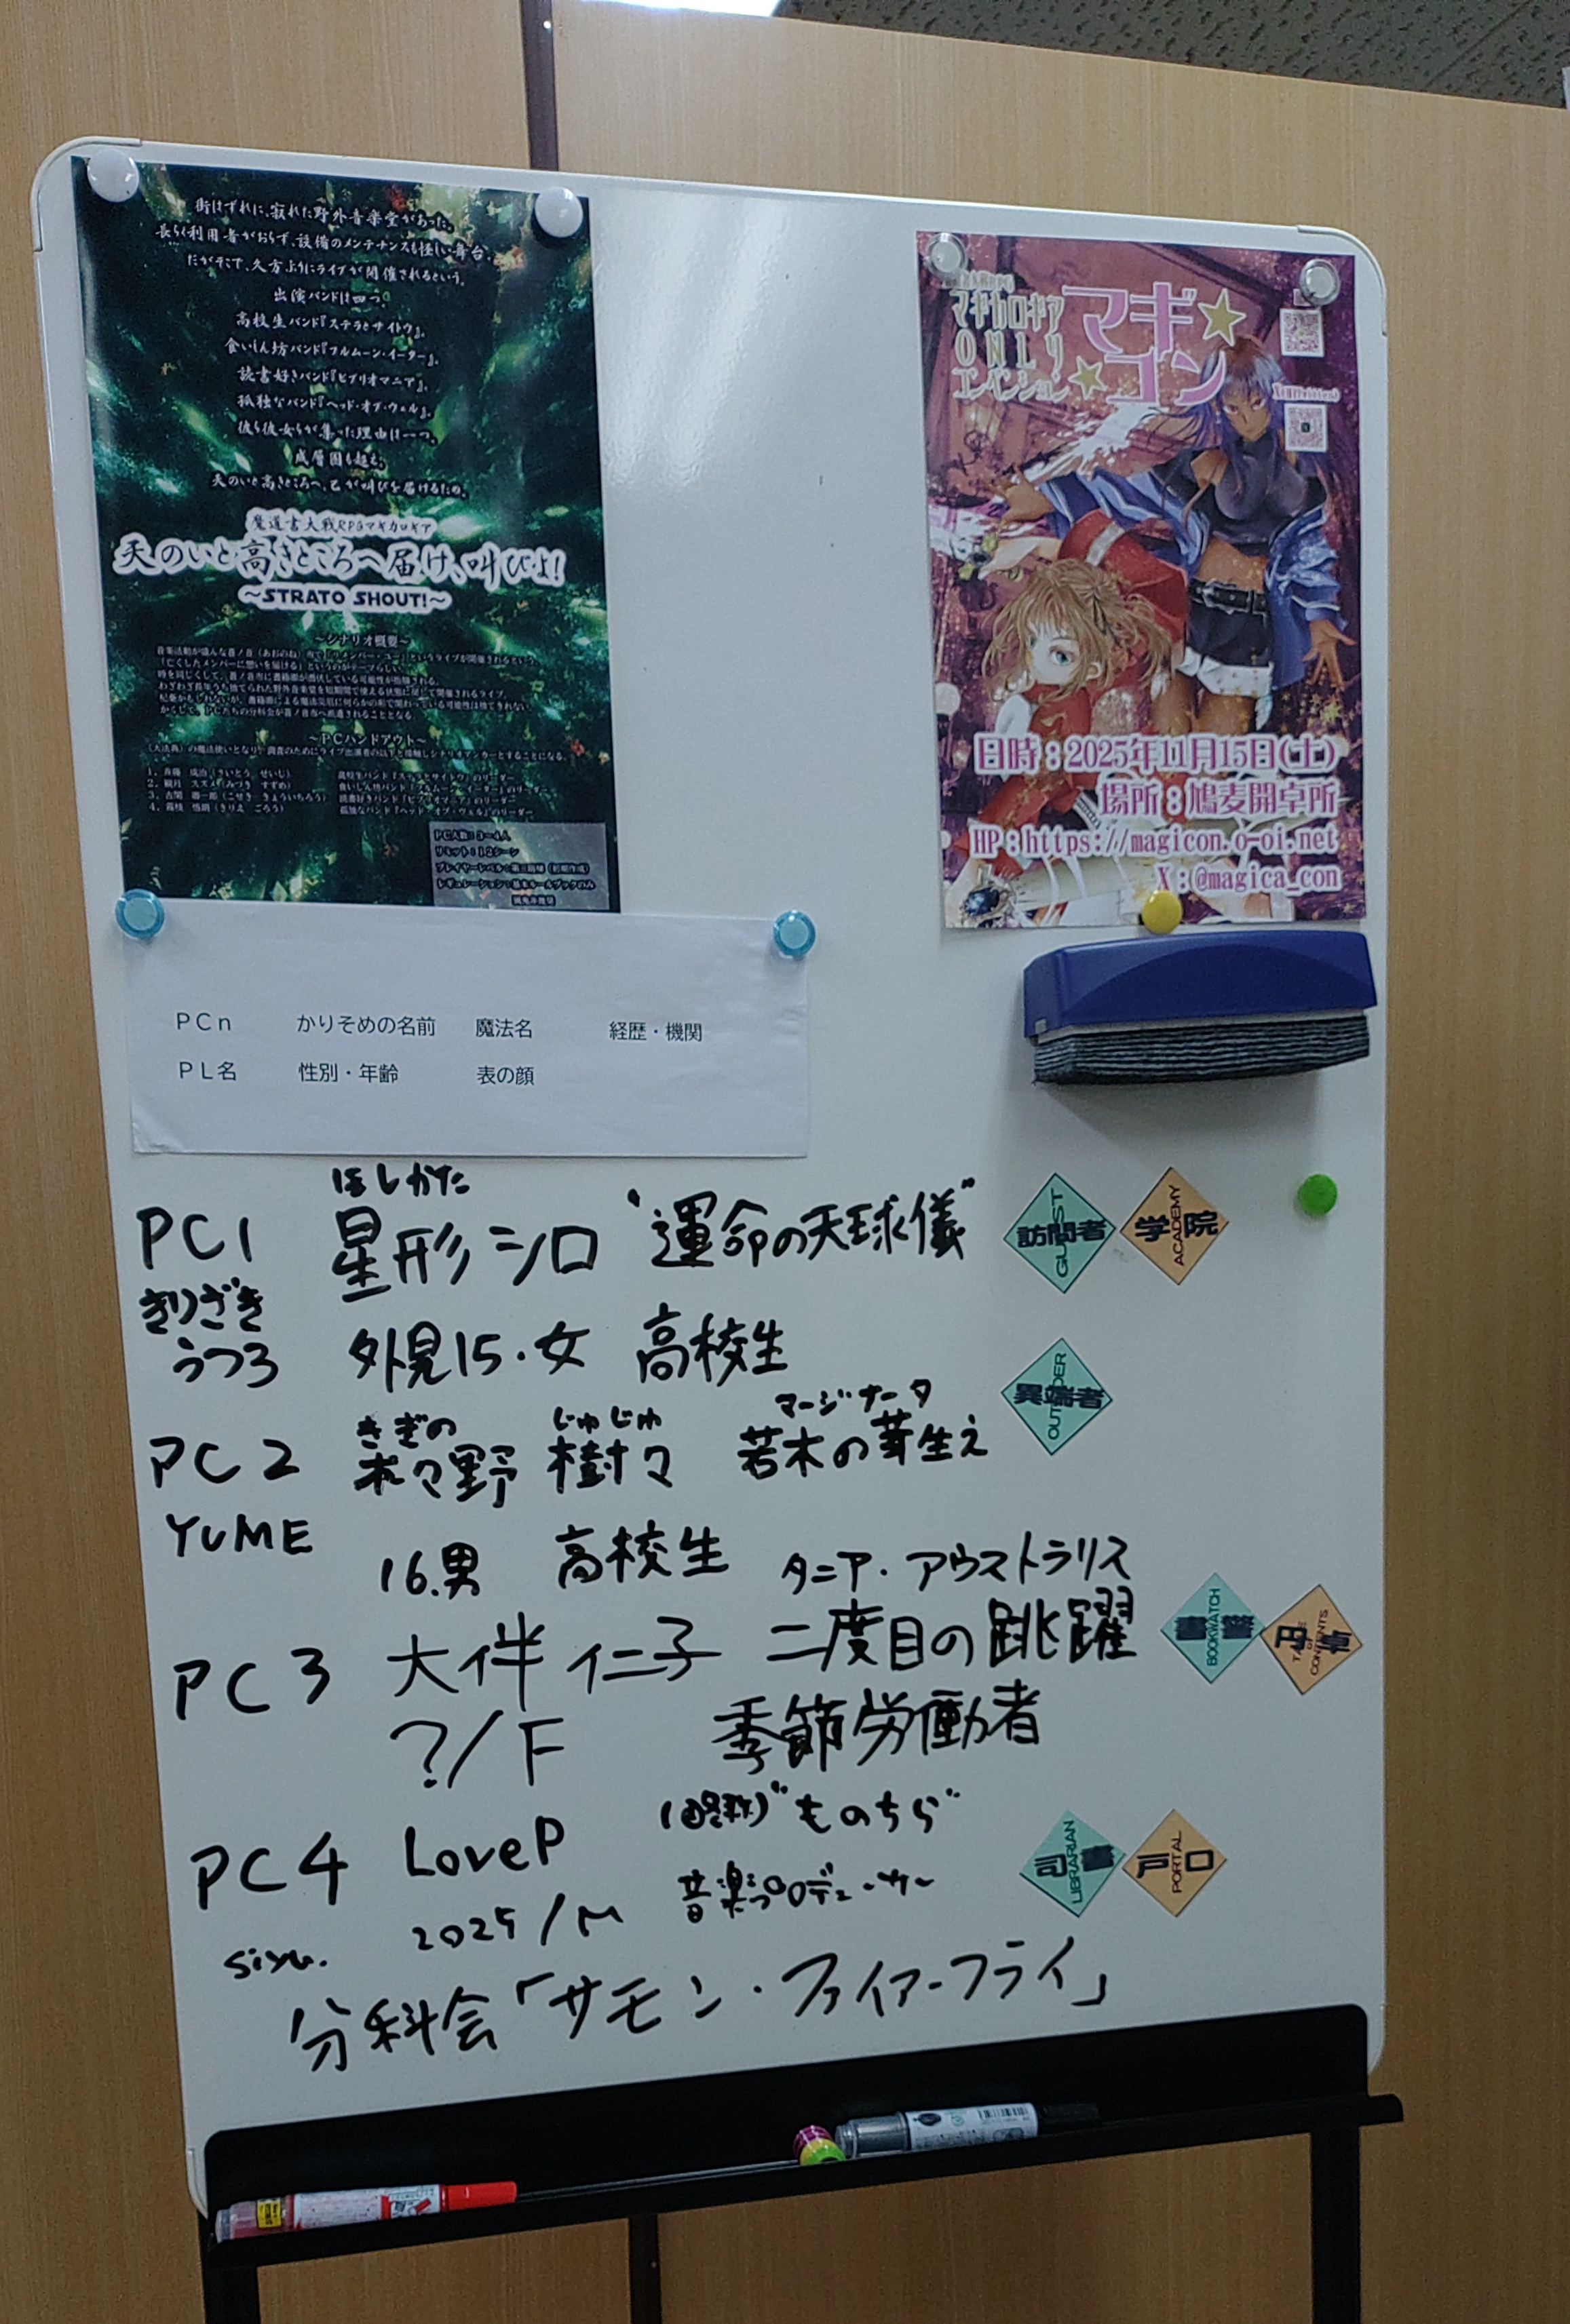 街はずれに、寂れた野外音楽堂があった。
長らく利用者がおらず、設備のメンテナンスも怪しい舞台。
だがそこで、久方ぶりにライブが開催されるという。
出演バンドは四つ。
高校生バンド『ステラとサイトウ』。
食いしん坊バンド『フルムーン・イーター』。
読書好きバンド『ビブリオマニア』。
孤独なバンド『ヘッド・オブ・ウェル』。
彼ら彼女らが集った理由は一つ。
成層圏も超え、
天のいと高きところへ、己が叫びを届けるため。
魔道書大戦RPGマギカロギア
天のいと高きところへ届け、叫びよ!
～STRATO SHOUT!～
～シナリオ概要～
～PCハンドアウト～
PC人数:3～4人
リミット:12シーン
マギカロギア
ONLY
コンベンション
マギ
コン
日時:2025年11月15日(土)
場所:鳩麦開卓所
HP:https://magicon.o-oi.net
X:@magica_con
PCn かりそめの名前 魔法名 経歴・機関
PL名 性別・年齢 表の顔
ほしがた
PC1 星形シロ “運命の天球儀” 訪問者 GUEST 学院 ACADEMY
きりざき
うつろ 外見15・女 高校生
異端者 OUTSIDER
きぎの じゅじゅ マージナータ
PC2 木々野 樹々 若木の芽生え
YUME 16.男 高校生
タニア・アウストラリス
PC3 大伴 仁子 二度目の跳躍 書警 BOOKWATCH 円卓 TABLE OF CONTENTS
?/F 季節労働者
(略称)“ものちら”
PC4 LoveP 司書 LIBRARIAN 戸口 PORTAL
2025/M 音楽プロデューサー
siyu.
分科会「サモン・ファイアーフライ」